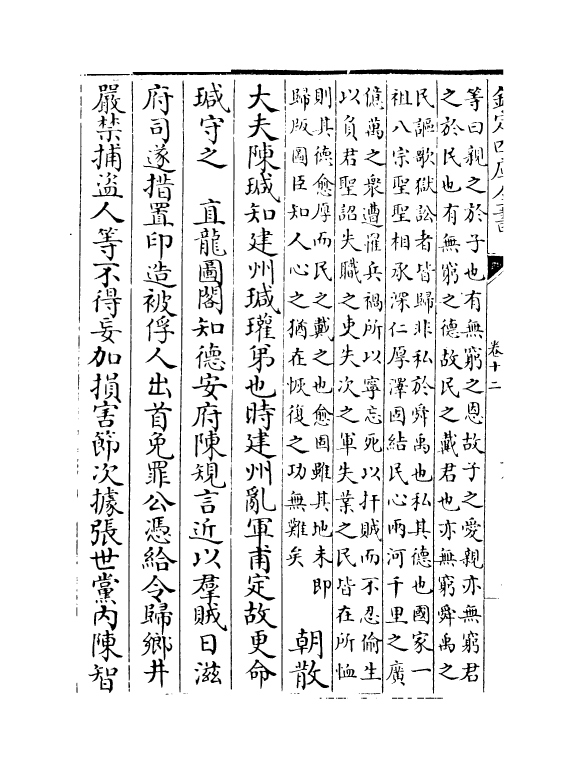 欽定四庫全書
卷十二
等曰親之於子也有無窮之恩故子之愛親亦無窮君
之於民也有無窮之德故民之戴君也亦無窮舜禹之
民謳歌獄訟者皆歸非私於舜禹也私其德也國家一
祖八宗聖聖相承深仁厚澤固結民心兩河千里之廣
億萬之衆遭罹兵禍所以寧忘死以扞賊而不忍偷生
以負君聖詔失職之吏失次之軍失業之民皆在所恤
則其德愈厚而民之戴之也愈固雖其地未即
歸版圖臣知人心之猶在恢復之功無難矣
朝散
大夫陳瑊知建州瑊瓘弟也時建州亂軍甫定故更命
瑊守之 直龍圖閣知德安府陳規言近以羣賊日滋
府司遂措置印造被俘人出首免罪公憑給令歸鄉井
嚴禁捕盜人等不得妄加損害節次據張世黨内陳智